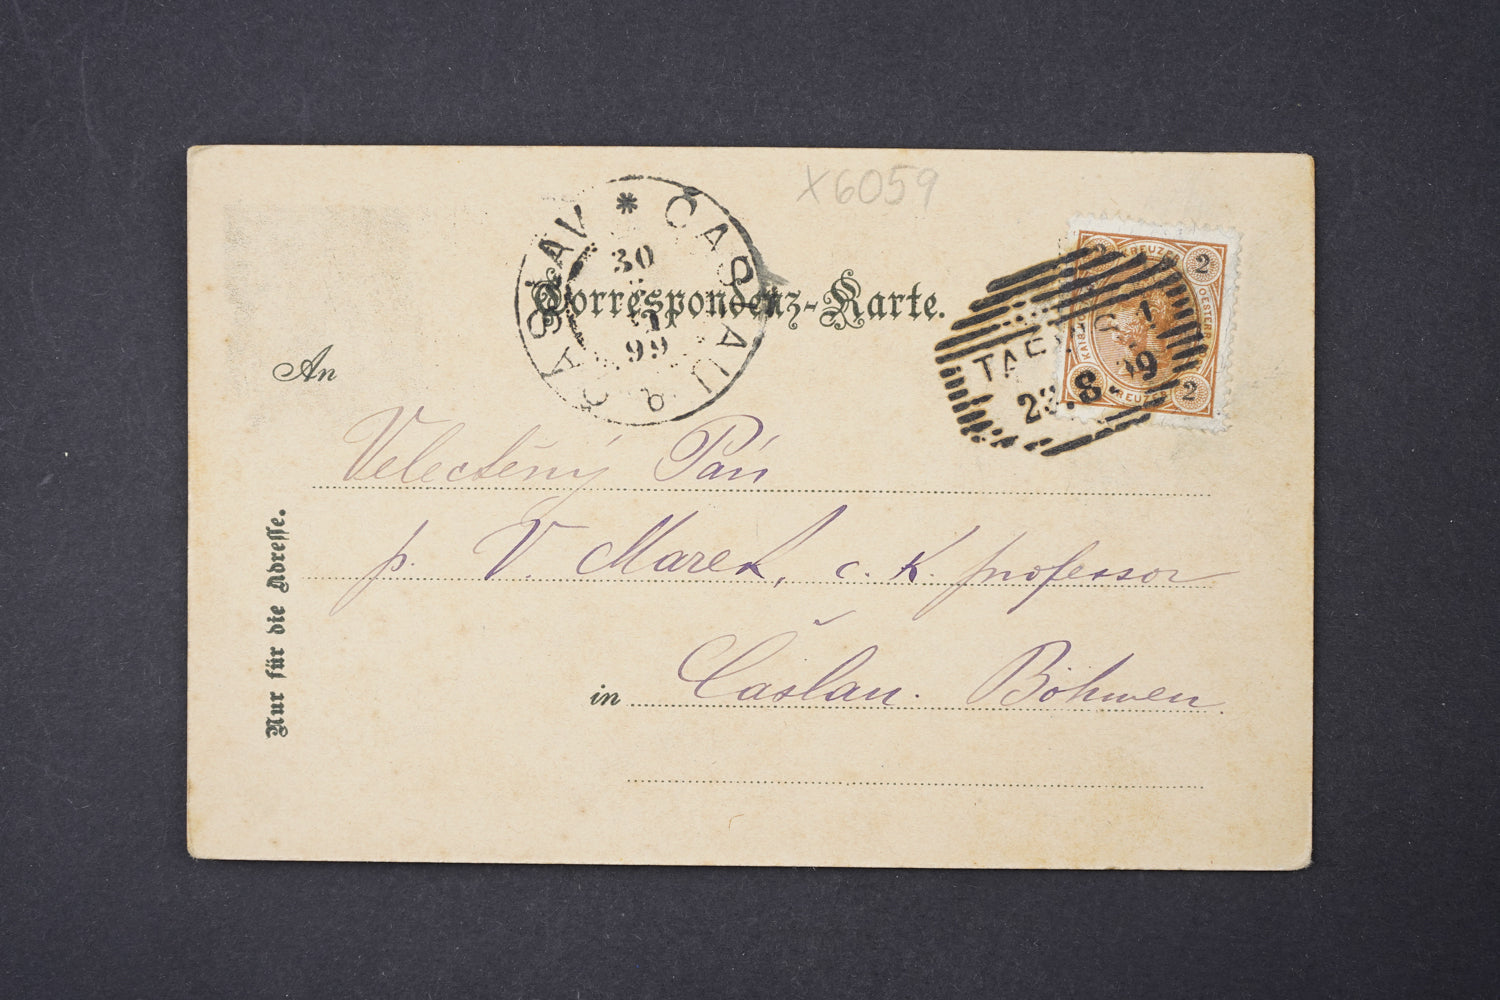 X6059
ČASLAU & ČÁSLAV *
30
99
2 KREUZER 2
KAIS. OESTERR.
KREUZER 2
23.8.99
Correspondenz-Karte.
An
Velectěný Pán
p. V. Marek, c. k. professor
in Čáslau. Böhmen.
Nur für die Adresse.